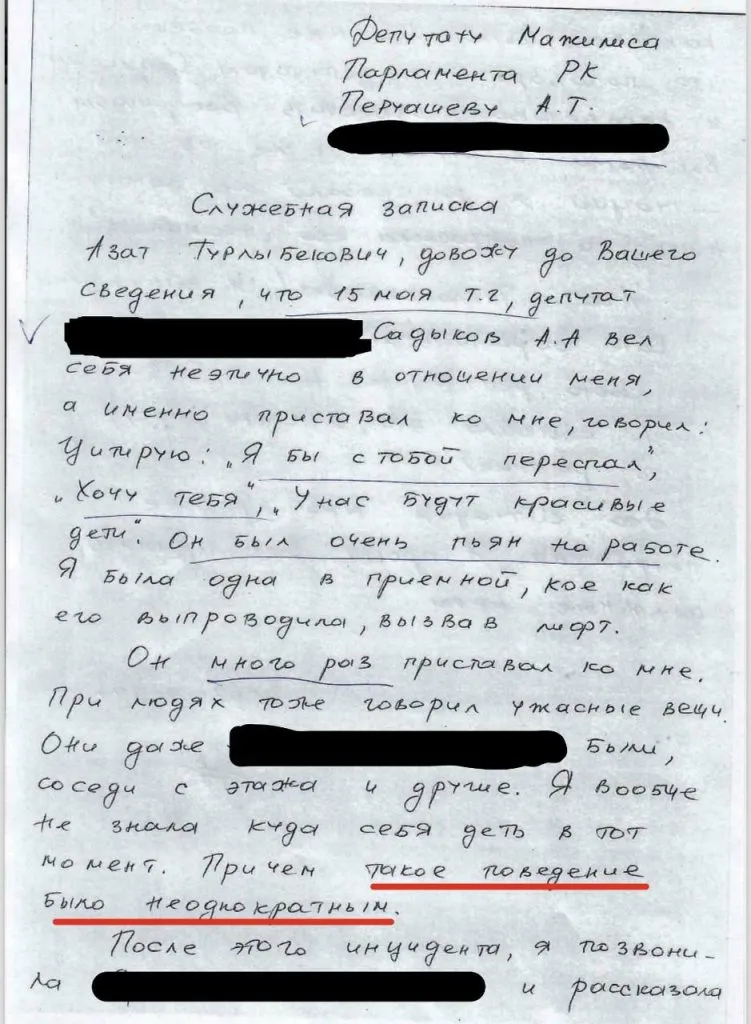 Депутату Мажилиса
Парламента РК
Перуашеву А.Т.
Служебная записка
Азат Турлыбекович, довожу до Вашего
сведения, что 15 мая т.г, депутат
Садыков А.А вел
себя неэтично в отношении меня,
а именно приставал ко мне, говорил:
Цитирую: „Я бы с тобой переспал",
„Хочу тебя", „У нас будут красивые
дети". Он был очень пьян на работе.
Я была одна в приемной, кое как
его выпроводила, вызвав лифт.
Он много раз приставал ко мне.
При людях тоже говорил ужасные вещи.
Они даже были,
соседи с этажа и другие. Я вообще
не знала куда себя деть в тот
момент. Причем такое поведение
было неоднократным.
После этого инцидента, я позвони-
ла и рассказала